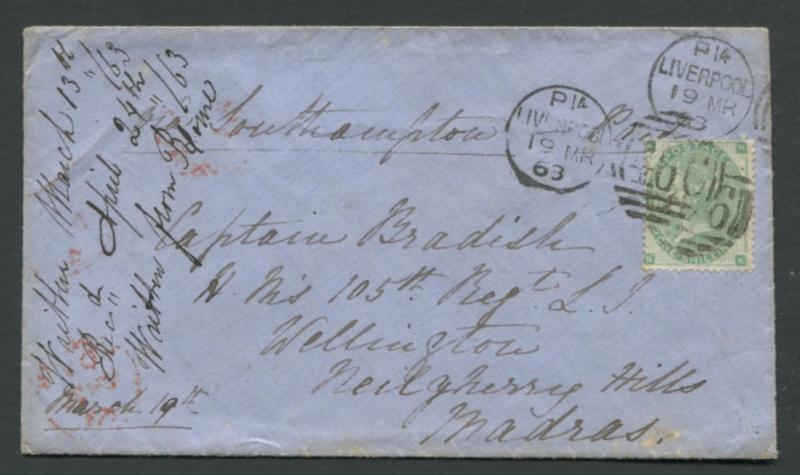 Southampton
Captain Bradish
H. M's 105th Regt. L. I.
Wellington
Neilgherry Hills
Madras.
March 19th
Written March 13th /63
Recd April 24th /63
Written from Rome
P 14
LIVERPOOL
19 MR
63
P 14
LIVERPOOL
19 MR
63
POSTAGE